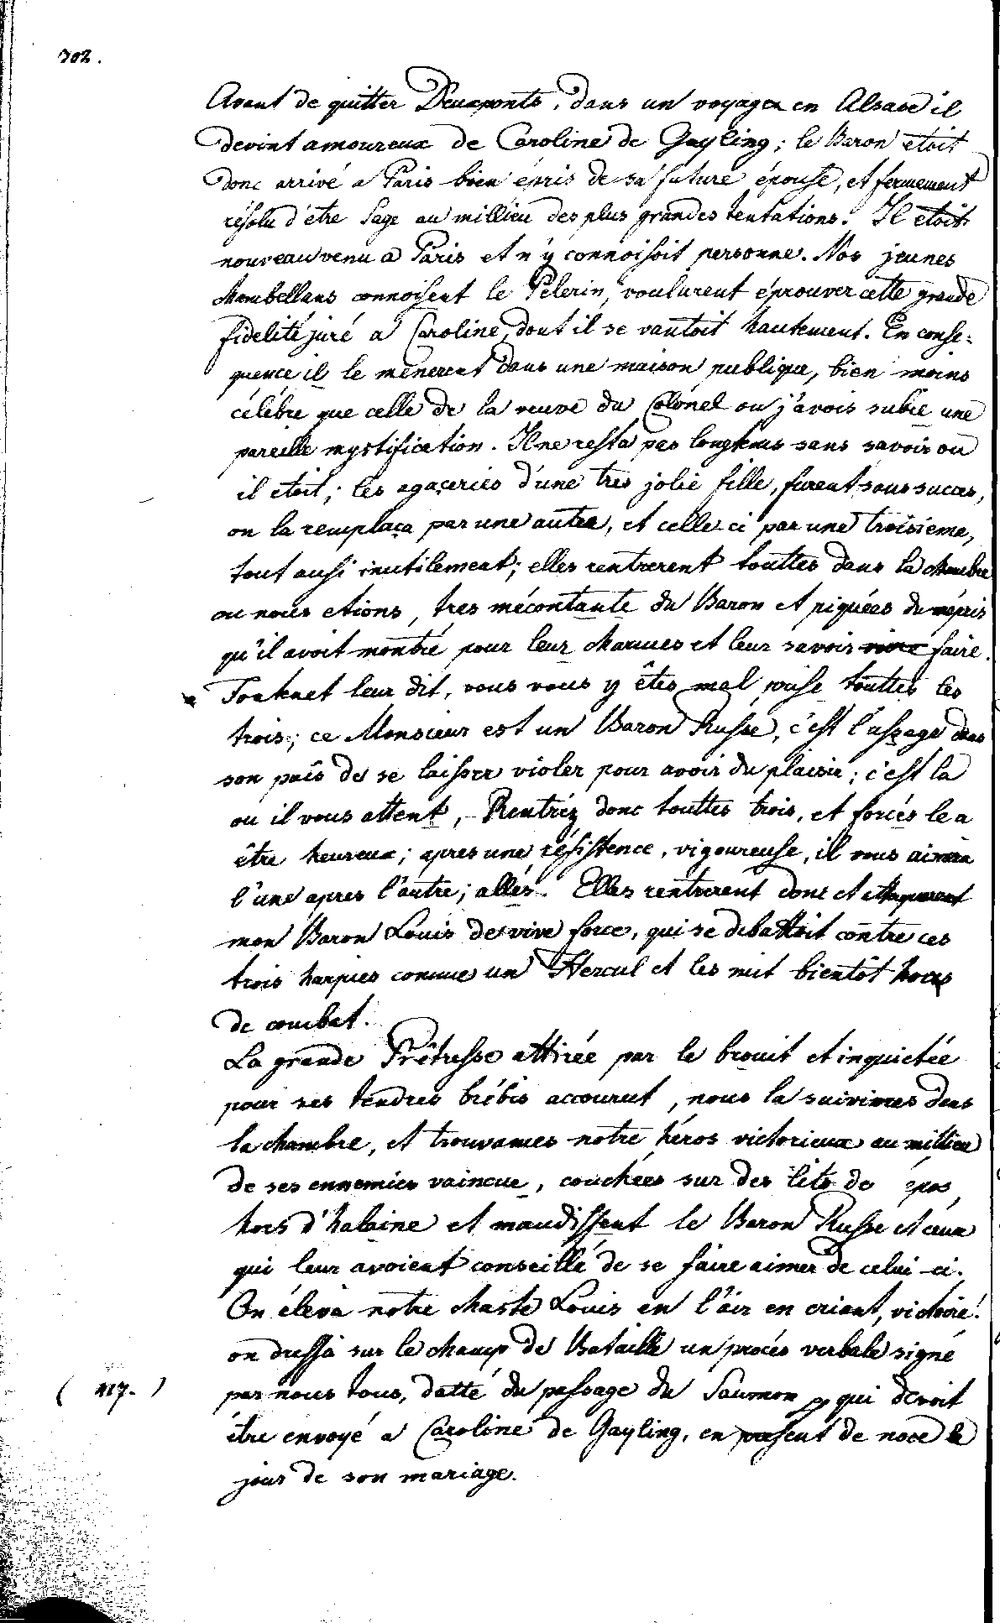 302.
Avant de quitter Deuxponts, dans un voyage en Alsace il
devint amoureux de Caroline de Gayling; le Baron etoit
donc arrivé a Paris bien épris de sa future épouse, et fermement
résolu d'être sage au millieu des plus grandes tentations. Il etoit
nouveau venu a Paris et n'y connoissoit personne. Nos jeunes
chambellans connoissent le Pelerin, voulurent éprouver cette grande
fidelité juré a Caroline, dont il se vantoit hautement. En conse=
quence il le menerent dans une maison publique, bien moins
célébre que celle de la veuve du Colonel ou j'avois subie une
pareille mystification. Il ne resta pas longtems sans savoir ou
il etoit; les agaçeries d'une tres jolie fille, furent sans succes,
on la remplaça par une autre, et celle ci par une troisieme,
tout aussi inutilement; elles rentrerent touttes dans la chambre
ou nous etions, tres mécontante du Baron et piquées du mépris
qu'il avoit montré pour leur charmes et leur savoir vivre faire.
leur dit, vous vous y êtes mal prise touttes les
trois; ce Monsieur est un Baron Russe, c'est l'usage dans
son païs de se laisser violer pour avoir du plaisir; c'est la
ou il vous attent, Rentréz donc touttes trois, et forcés le a
être heureux; apres une résistence, vigoureuse, il vous aimera
l'une apres l'autre; allés. Elles rentrerent donc et attaquerent
mon Baron Louis de vive force, qui se debattoit contre ces
trois harpies comme un Hercul et les mit bientôt hors
de combat.
La grande Prêtresse attirée par le brouit et inquietée
pour ses tendres brébis accourut, nous la suivimes dans
la chambre, et trouvames notre héros victorieux au millieu
de ses ennemies vaincue, couchées sur des lits de épos
hors d'halaine et maudissent le Baron Russe et ceux
qui leur avoient conseillé de se faire aimer de celui-ci.
On éleva notre chaste Louis en l'air en criant, victoire!
on dressa sur le champ de Bataille un procés verbale signé
( 117. ) par nous tous, datté du passage du Saumon qui devoit
être envoyé a Caroline de Gayling, en present de noce le
jour de son mariage.